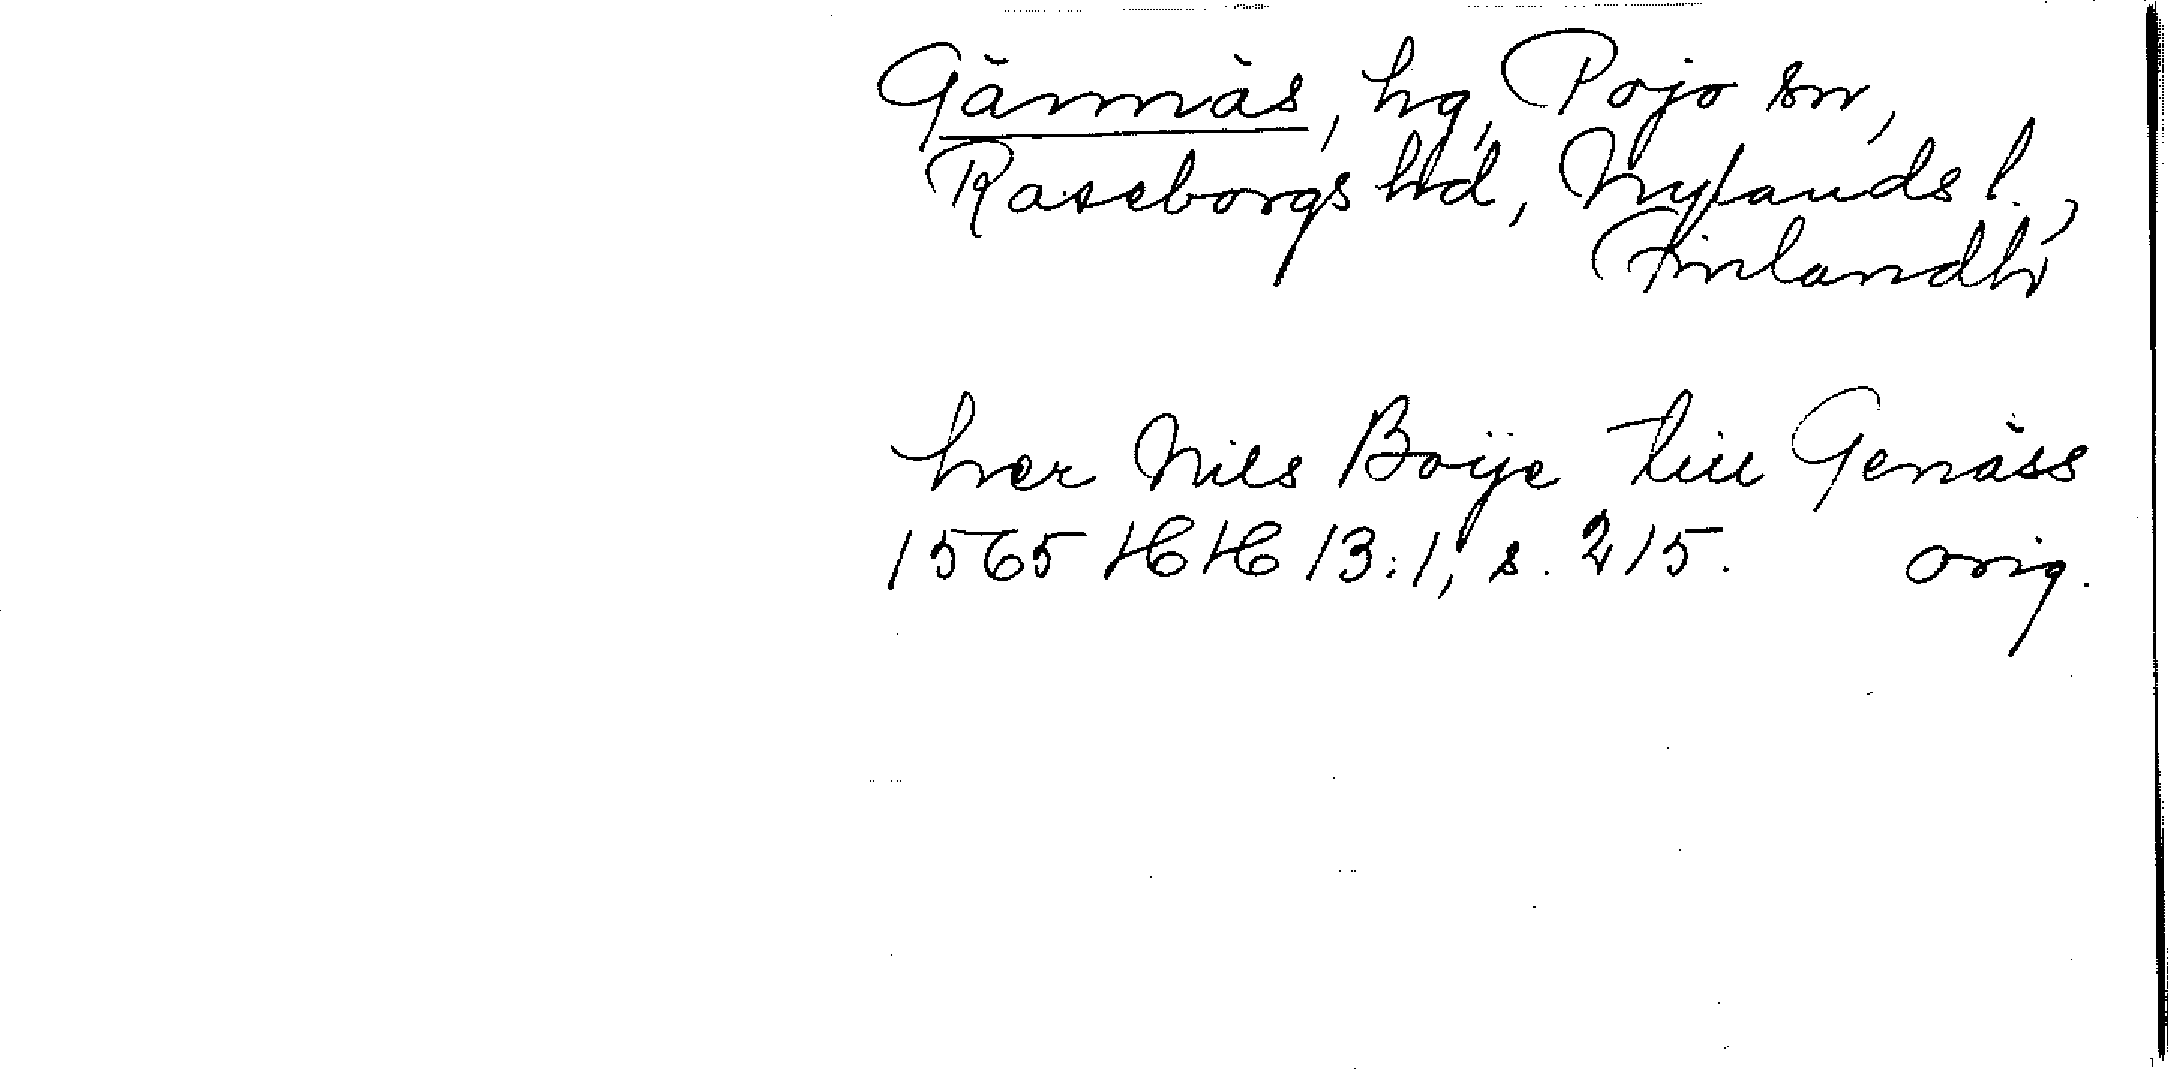 Gännäs, hg, Pojo sn,
Raseborgs hd, Nylands l.,
Finland
her Nils Boije till Genäss
1565 HH 13:1, s. 215. orig.